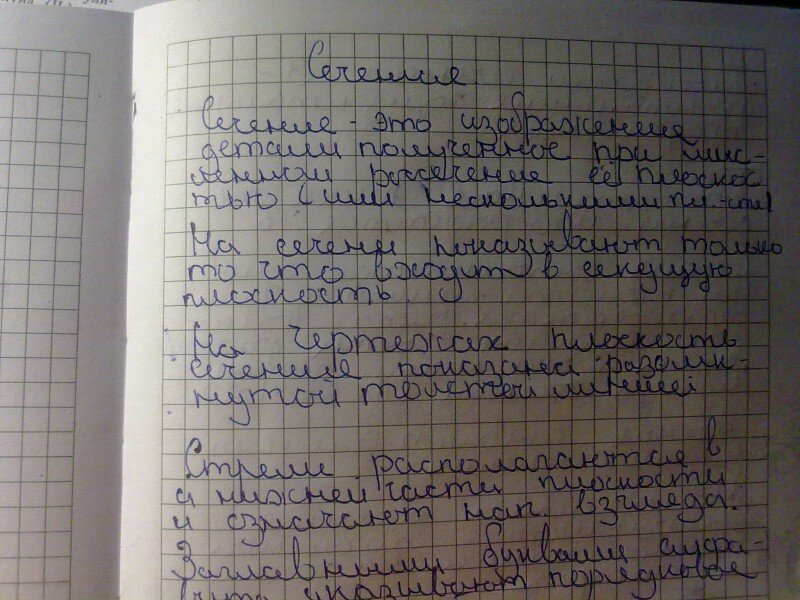 Сечение
Сечение - это изображение
детали полученное при мыс-
ленном рассечение её плоскос
тью (или несколькими пл-сти)
На сечени показивают только
то что входит в секущую
плоскость
На чертежах плоскость
сечение показана разомк-
нутой толстой линией
Стрели располагаются в
и нижней части плоскости
и означают нап. взгляда.
Заглавними буквами алфа-
вита указивают порядковое